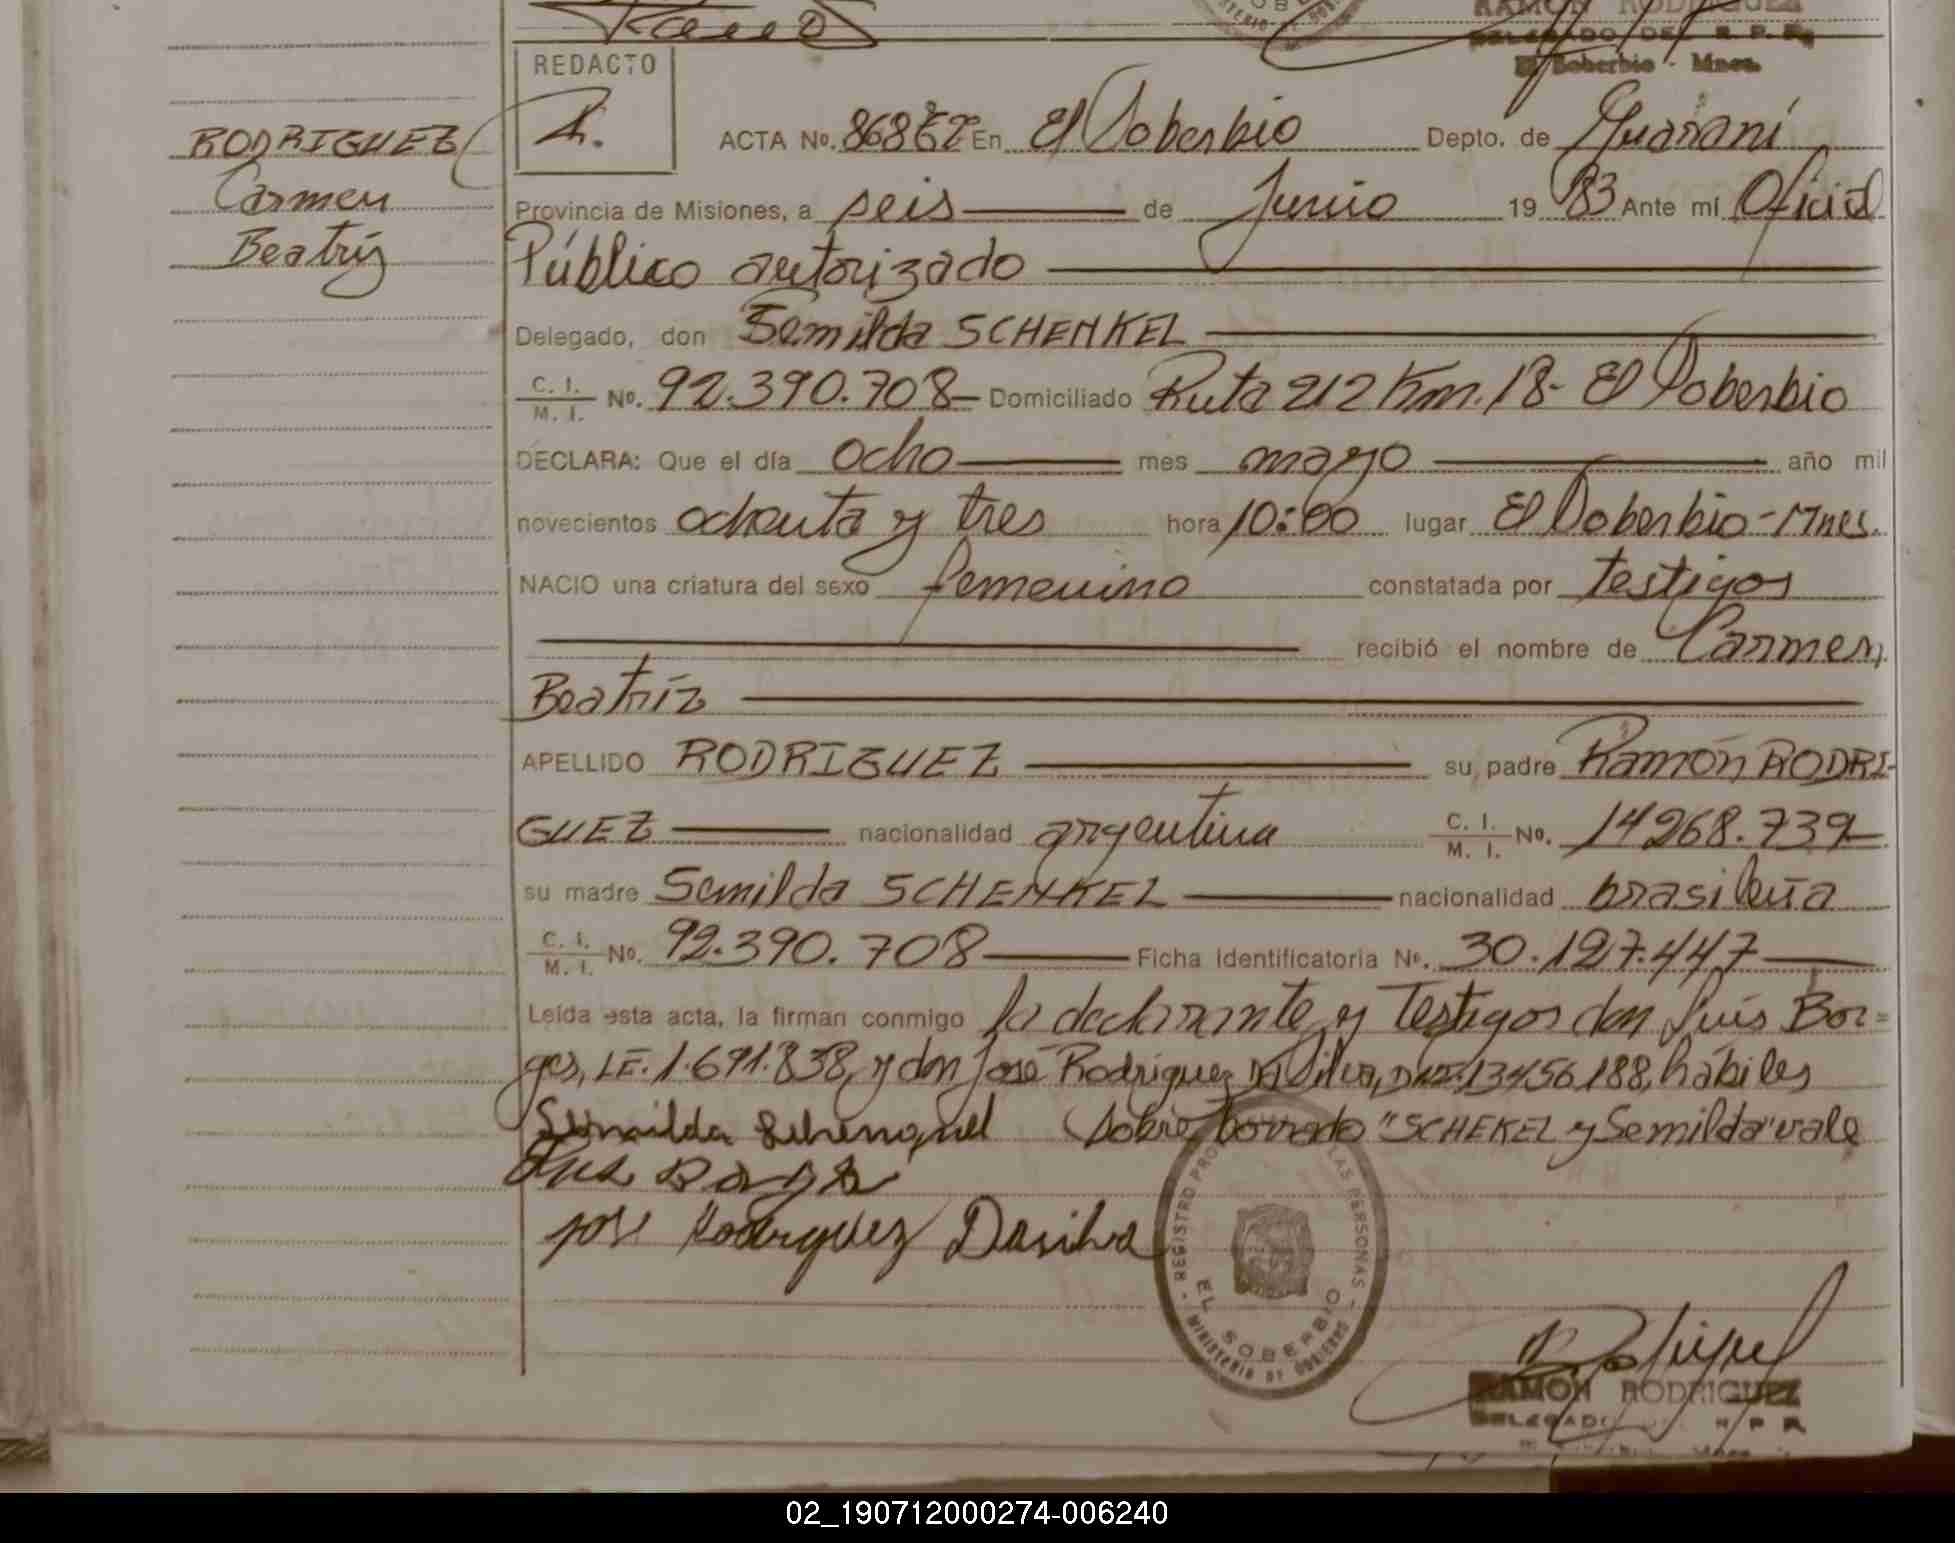 RAMON RODRIGUEZ
DELEGADO DEL R. P. P.
El Soberbio - Mnes.
REDACTO
RODRIGUEZ
Carmen
Beatríz
ACTA No. 868 En El Soberbio Depto. de Guaraní
Provincia de Misiones, a seis de Junio 19 83 Ante mí Oficial
Público autorizado
Delegado, don Semilda SCHENKEL
C. I. / M. I. No. 92.390.708- Domiciliado Ruta 212 Km. 18- El Soberbio
DECLARA: Que el día ocho mes mayo año mil
novecientos ochenta y tres hora 10:00 lugar El Soberbio-Mnes.
NACIO una criatura del sexo femenino constatada por testigos
recibió el nombre de Carmen
Beatríz
APELLIDO RODRIGUEZ su padre Ramón RODRI-
GUEZ nacionalidad argentina C. I. / M. I. No. 14268.739-
su madre Semilda SCHENKEL nacionalidad brasileña
C. I. / M. I. No. 92.390.708 Ficha identificatoria No. 30.127.447
Leída esta acta, la firman conmigo la declarante y testigos don Luís Bor=
ges, LE. 1.691.838, y don José Rodriguez Da Silva, DNI. 13456.188, hábiles
Semilda Schenquel Sobre borrado "SCHEKEL y Semilda" vale
Luis Borges
José Rodriguez Dasilva
- REGISTRO PROVINCIAL DE LAS PERSONAS -
EL SOBERBIO
MINISTERIO DE GOBIERNO
RAMON RODRIGUEZ
DELEGADO DEL R. P. P.
02_190712000274-006240